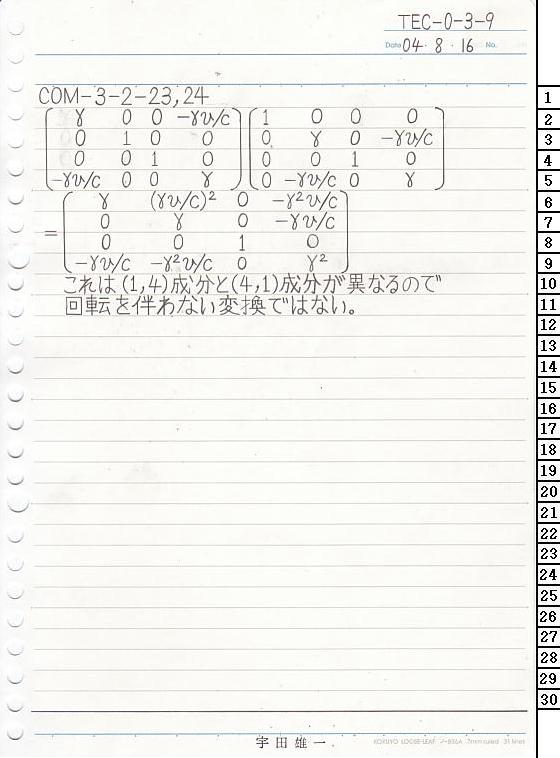 TEC-0-3-9
Date 04・8・16 No.
COM-3-2-23,24
γ 0 0 -γv/c 1 0 0 0
0 1 0 0 0 γ 0 -γv/c
0 0 1 0 0 0 1 0
-γv/c 0 0 γ 0 -γv/c 0 γ
γ (γv/c)² 0 -γ²v/c
0 γ 0 -γv/c
=
0 0 1 0
-γv/c -γ²v/c 0 γ²
これは(1,4)成分と(4,1)成分が異なるので
回転を伴わない変換ではない。
1
2
3
4
5
6
7
8
9
10
11
12
13
14
15
16
17
18
19
20
21
22
23
24
25
26
27
28
29
30
宇田雄一
KOKUYO LOOSE-LEAF ノ-836A 7mm ruled 31 lines